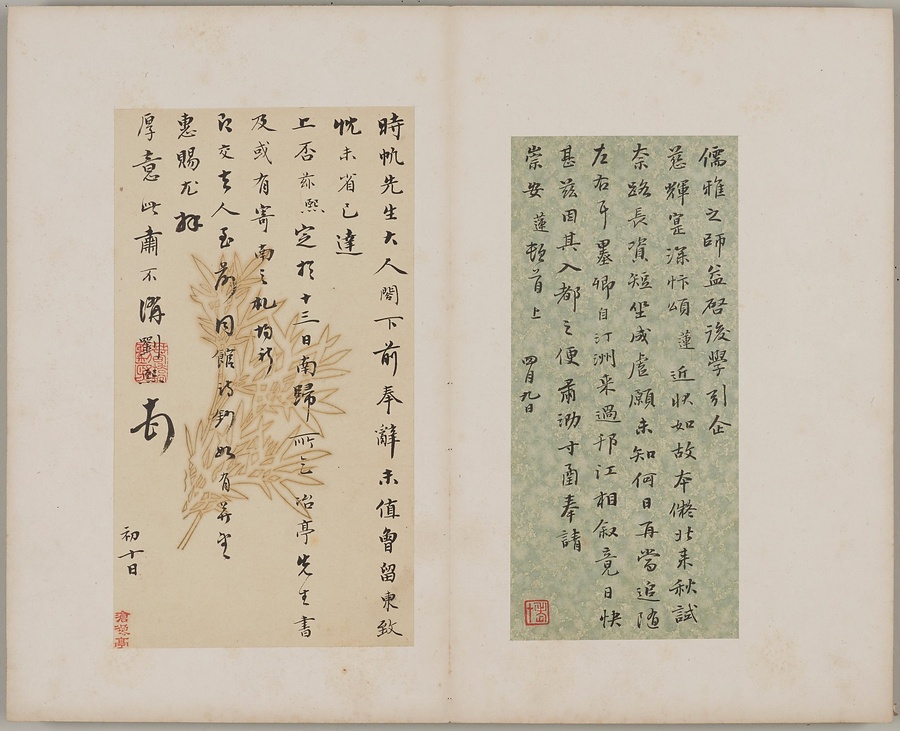 儒雅之師益啓後學引企
慈輝寔深忭頌蓮近狀如故本儗北來秋試
奈路長資短坐成虛願未知何日再當追隨
左右耳墨卿自汀洲來過邗江相叙竟日快
甚茲因其入都之便肅泐寸函奉請
崇安蓮頓首上 四月九日
時帆先生大人閣下前奉辭未值曾留柬致
忱未省已達
上否茲熙定於十三日南歸所乞冶亭先生書
及或有寄南之札均祈
即交去人至前同館詩鈔如有并望
惠賜尤拜
厚意此肅不備劉熙
初十日
滄浪亭